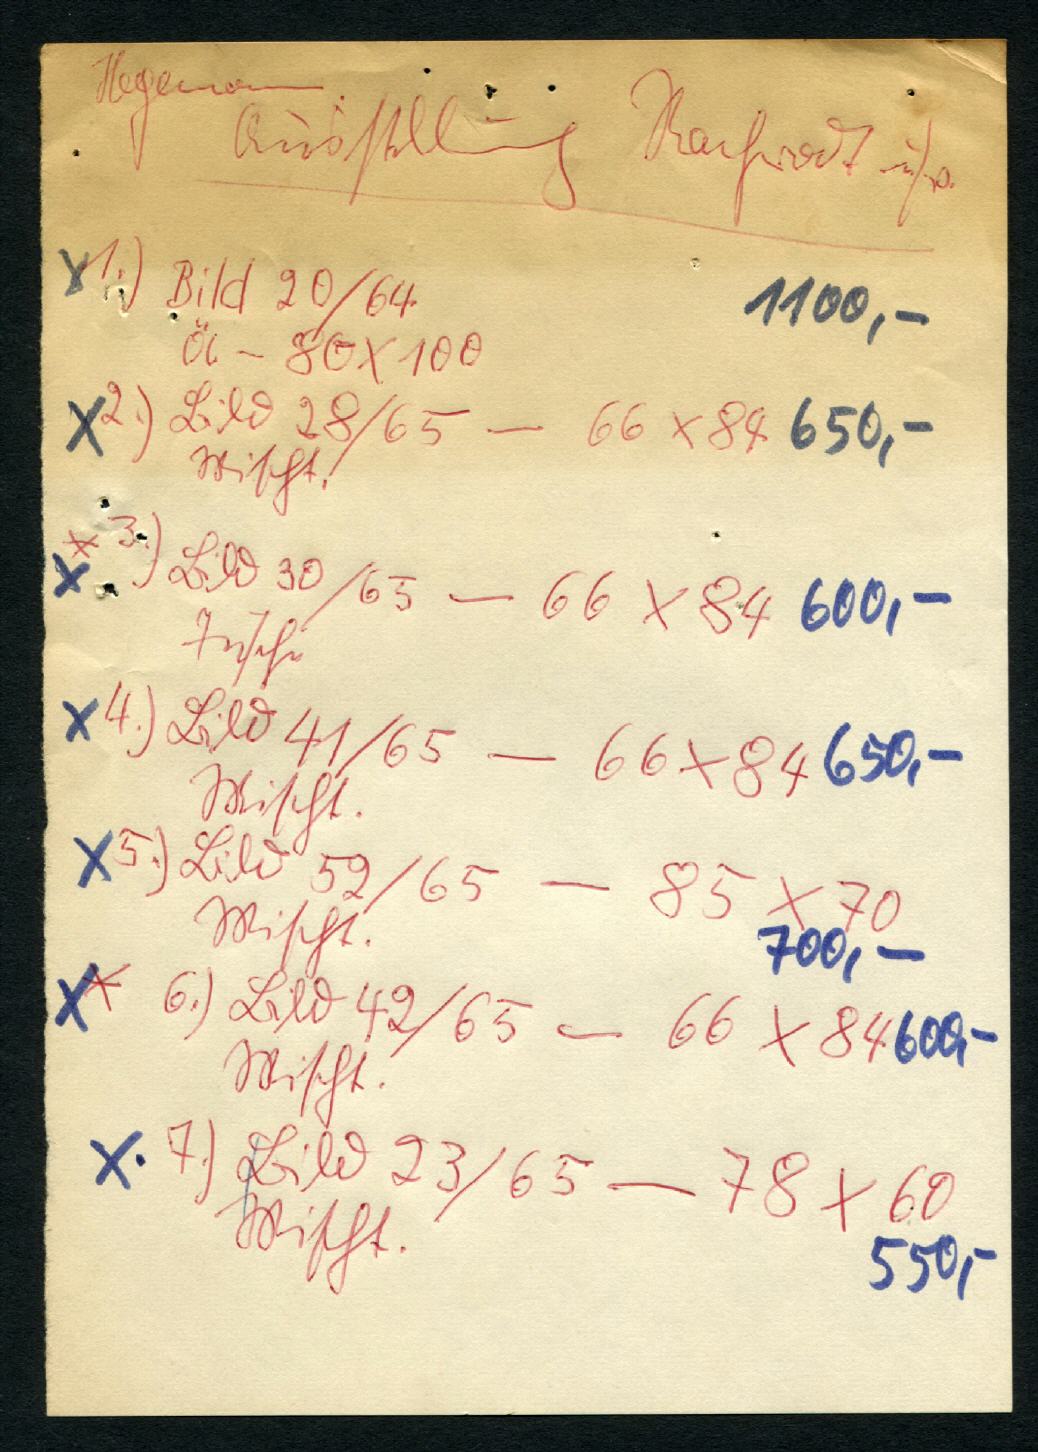 Hegemann
Ausstellung
x 1.) Bild 20/64 1100,-
Öl - 80 x 100
x 2.) Bild 28/65 — 66 x 84 650,-
Mischt.
x x 3.) Bild 30/65 — 66 x 84 600,-
Tusche
x 4.) Bild 41/65 — 66 x 84 650,-
Mischt.
x 5.) Bild 52/65 — 85 x 70
Mischt. 700,-
x x 6.) Bild 42/65 — 66 x 84 600,-
Mischt.
x. 7.) Bild 23/65 — 78 x 60
Mischt.
550,-